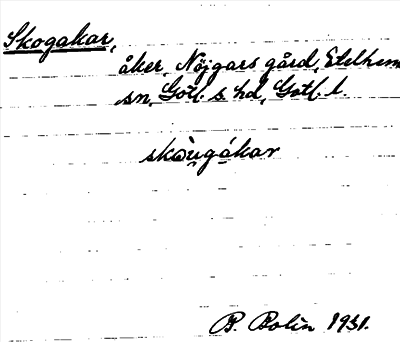 Skogakar,
åker, Nöjgars gård, Etelhem
sn, Gotl. s. hd, Gotl. l.
skòu̯gákar
B. Bolin 1931.